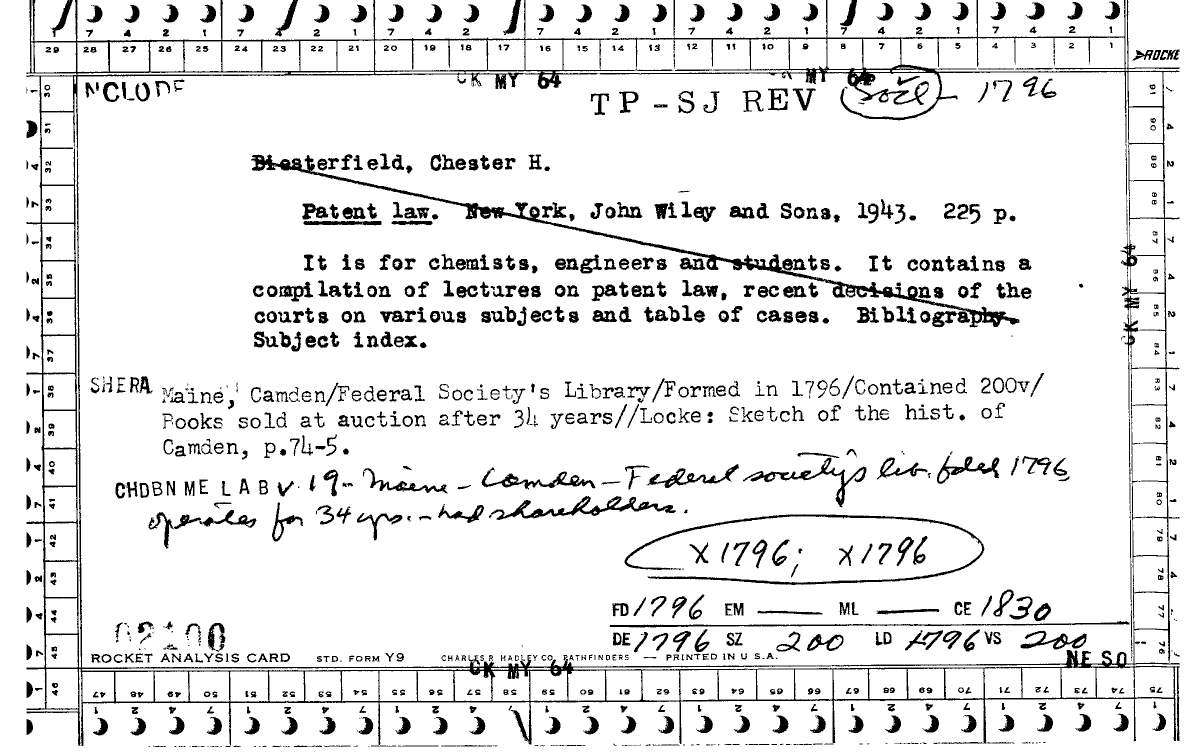 7 4 2 1 7 4 2 1 7 4 2 1 7 4 2 1 7 4 2 1 7 4 2 1 7 4 2 1
29 28 27 26 25 24 23 22 21 20 19 18 17 16 15 14 13 12 11 10 9 8 7 6 5 4 3 2 1
ROCKE
NCLUDE CK MY 64 CK MY 64
TP-SJ REV Socl - 1796
Biesterfield, Chester H.
Patent law. New York, John Wiley and Sons, 1943. 225 p.
It is for chemists, engineers and students. It contains a
compilation of lectures on patent law, recent decisions of the
courts on various subjects and table of cases. Bibliography.
Subject index.
SHERA Maine, Camden/Federal Society's Library/Formed in 1796/Contained 200v/
Books sold at auction after 34 years//Locke: Sketch of the hist. of
Camden, p.74-5.
CHDBN ME L A B V 19- Maine - Camden - Federal society's lib. fded 1796,
operates for 34 yrs. - had shareholders.
X1796; X1796
FD 1796 EM — ML — CE 1830
DE 1796 SZ 200 LD 1796 VS 200
02100
ROCKET ANALYSIS CARD STD. FORM Y9 CHARLES R. HADLEY CO. PATHFINDERS — PRINTED IN U.S.A.
CK MY 64 NE SO
30 31 32 33 34 35 36 37 38 39 40 41 42 43 44 45 46
91 90 89 88 87 86 85 84 83 82 81 80 79 78 77 76
CK MY 64
47 48 49 50 51 52 53 54 55 56 57 58 59 60 61 62 63 64 65 66 67 68 69 70 71 72 73 74 75